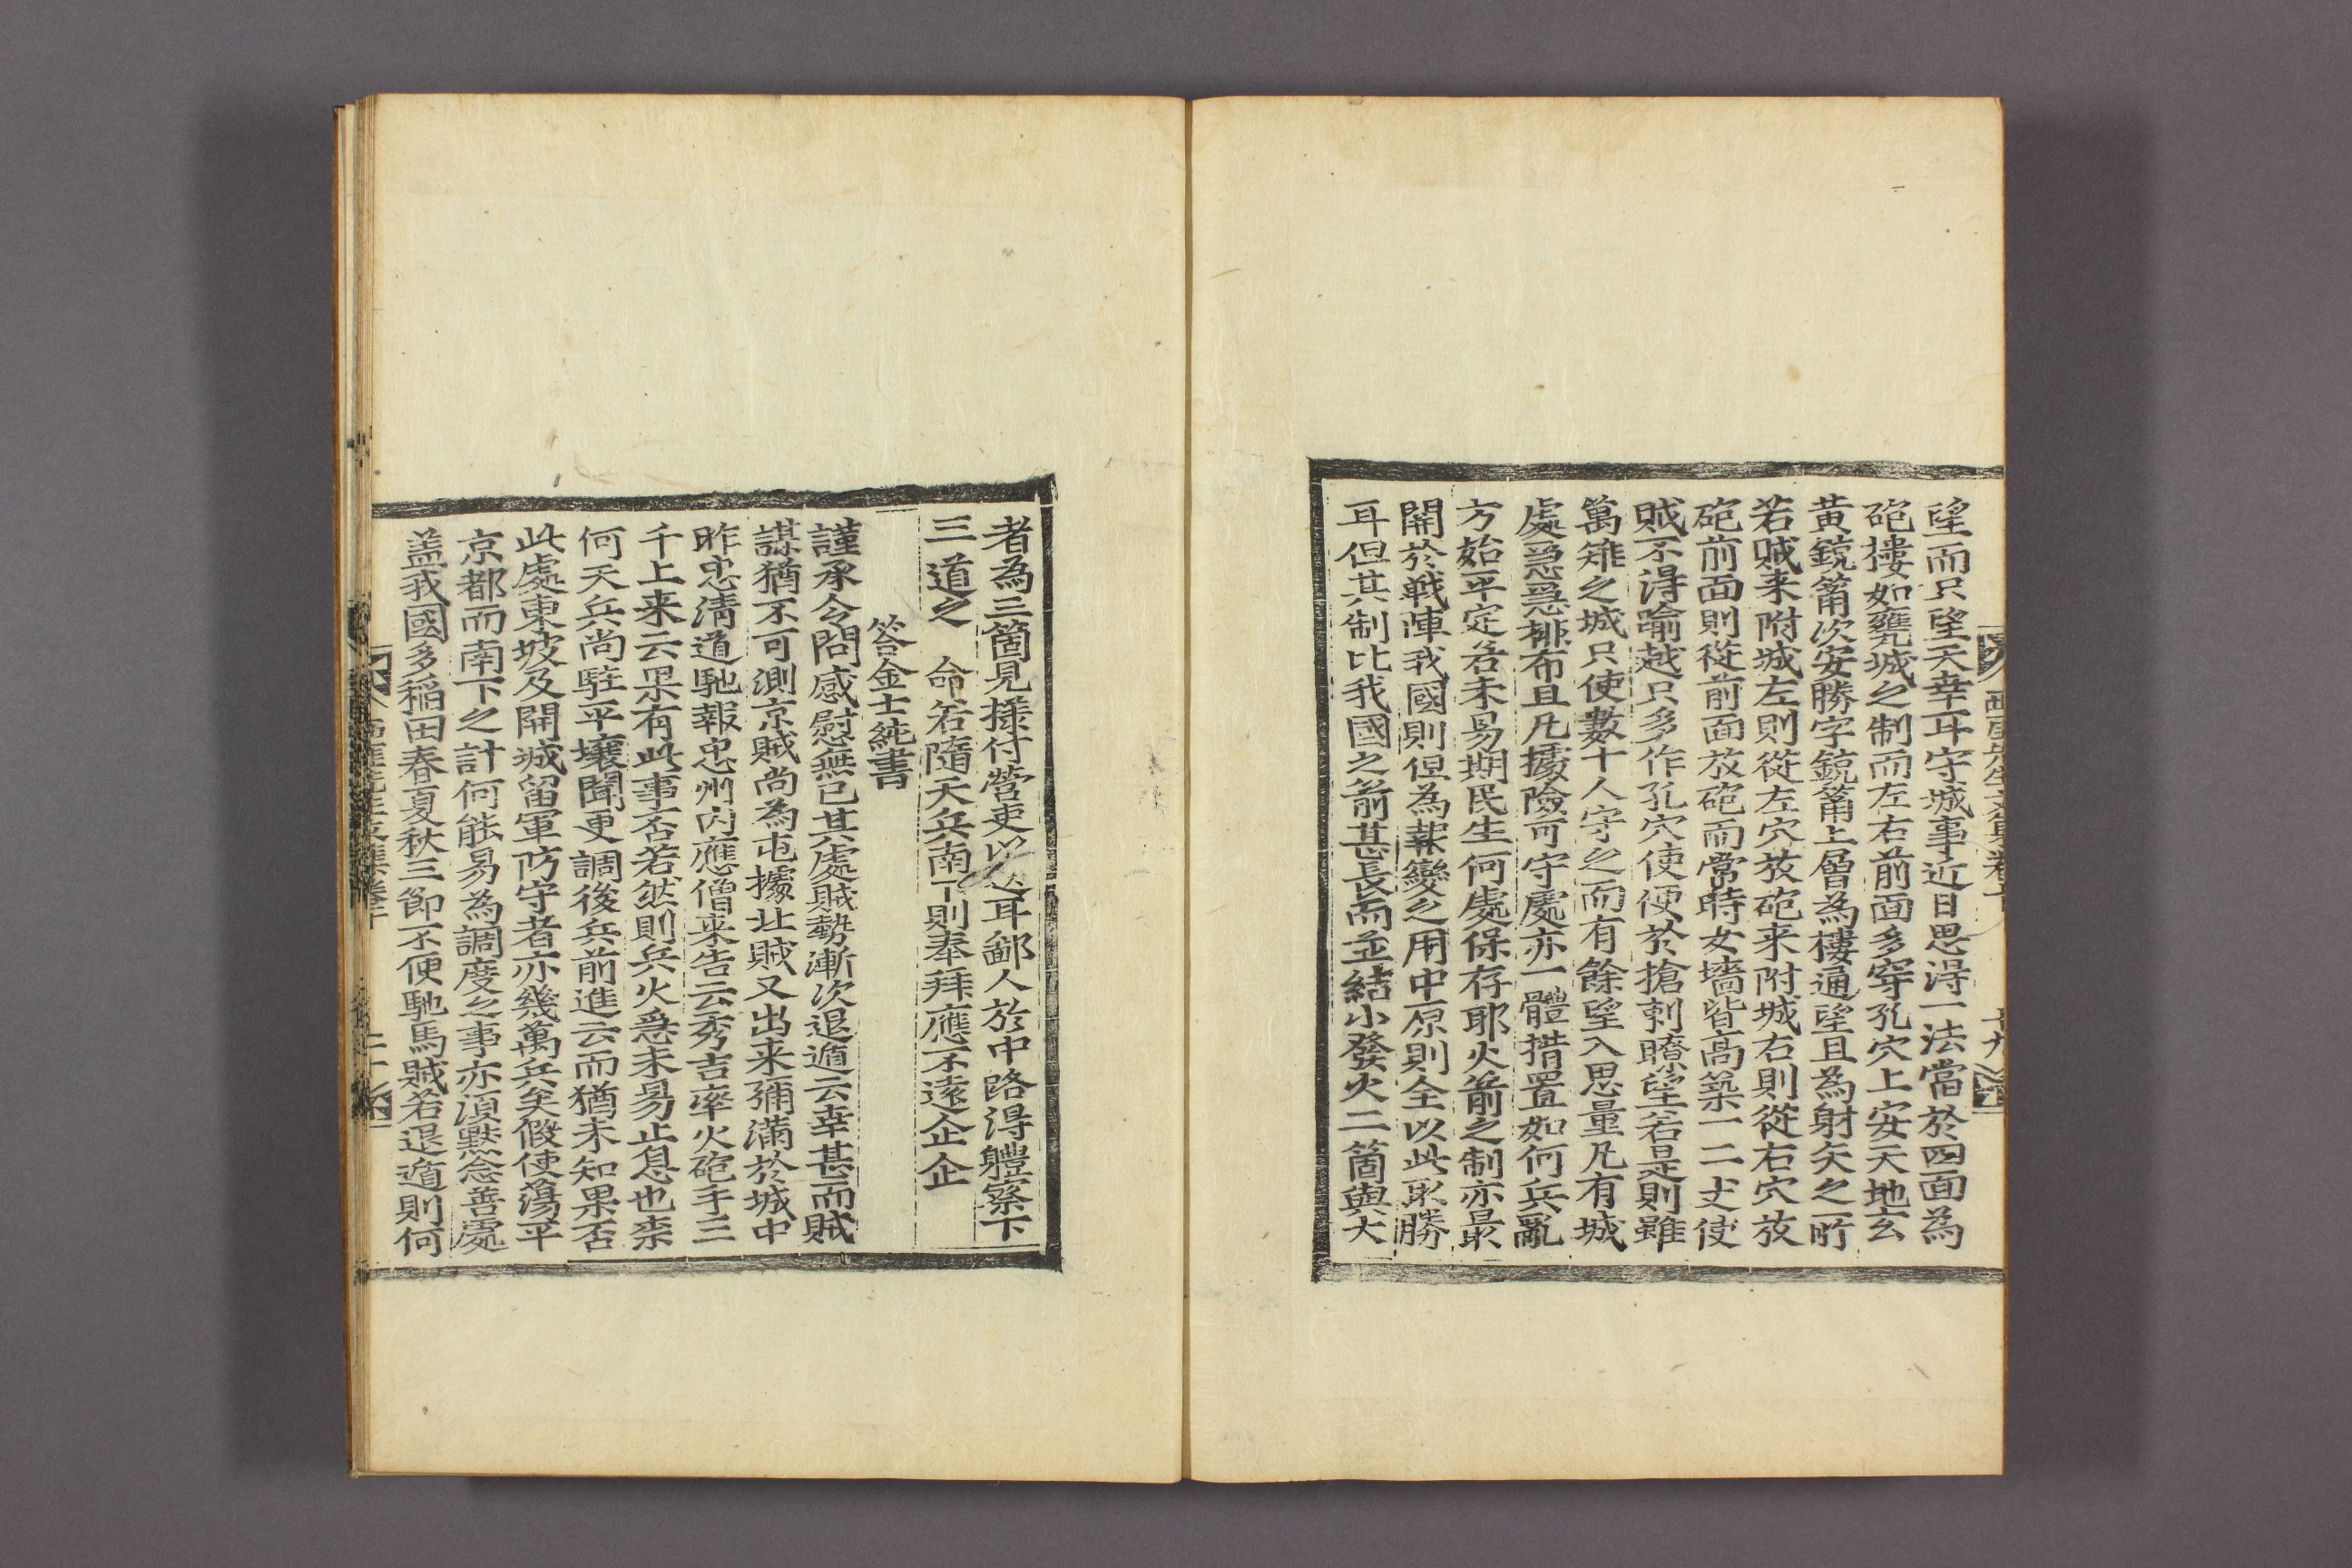 望而只望天幸耳守城事近日思得一法當於四面為
砲樓如甕城之制而左右前面多穿孔穴上安天地玄
黃銃筩次安勝字銃筩上層為樓通望且為射矢之所
若賊来附城左則從左穴放砲来附城右則從右穴放
砲前面則從前面放砲而常時女墻皆高築一二丈使
賊不得踰越只多作孔穴使便於搶刺瞭望若是則雖
萬雉之城只使數十人守之而有餘望入思量凡有城
處急急排布且凡據險可守處亦一體措置如何兵亂
方始平定若未易期民生何處保存耶火箭之制亦最
關於戰陣我國則但為報變之用中原則全以此取勝
耳但其制比我國之箭甚長而並結小發火二箇與大
西厓先生文集卷十
十九
者為三箇見樣付營吏以送耳鄙人於中路得體察下
三道之 命若隨天兵南下則奉拜應不遠企企
答金士純書
謹承令問感慰無已其處賊勢漸次退遁云幸甚而賊
謀猶不可測京賊尚為屯據北賊又出来彌滿於城中
昨忠清道馳報忠州內應僧来告云秀吉率火砲手三
千上来云果有此事否若然則兵火急未易止息也柰
何天兵尚駐平壤聞更調後兵前進云而猶未知果否
此處東坡及開城留軍防守者亦幾萬兵矣假使蕩平
京都而南下之計何能易為調度之事亦須默念善處
盖我國多稲田春夏秋三節不便馳馬賊若退遁則何
西厓先生文集卷十
二十